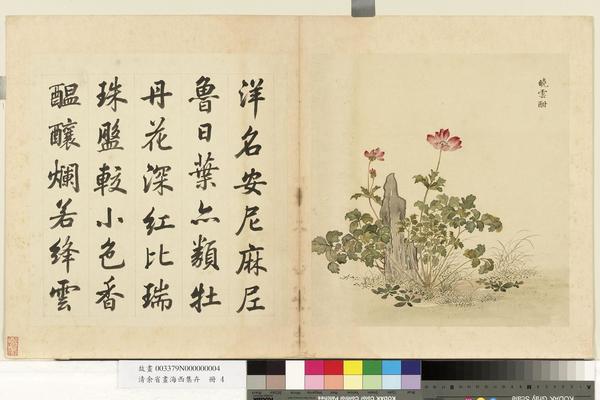 曉雲酣
洋名安尼麻尼
魯日葉亦類牡
丹花深紅比瑞
珠盤較小色香
醖釀爛若絳雲
故畫 003379N000000004
清余省畫海西集卉 冊 4
KODAK Gray Scale